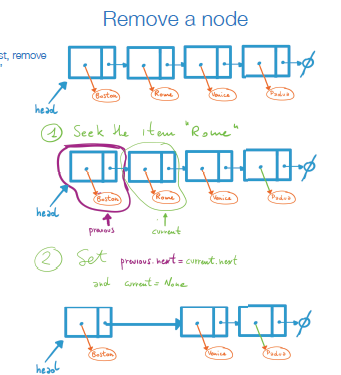 Remove a node
st, remove
"
Boston Rome Venice Padua
head
1 Seek the item "Rome"
Boston Rome Venice Padua
head
previous current
2 Set previous.next = current.next
and current = None
Boston Venice Padua
head